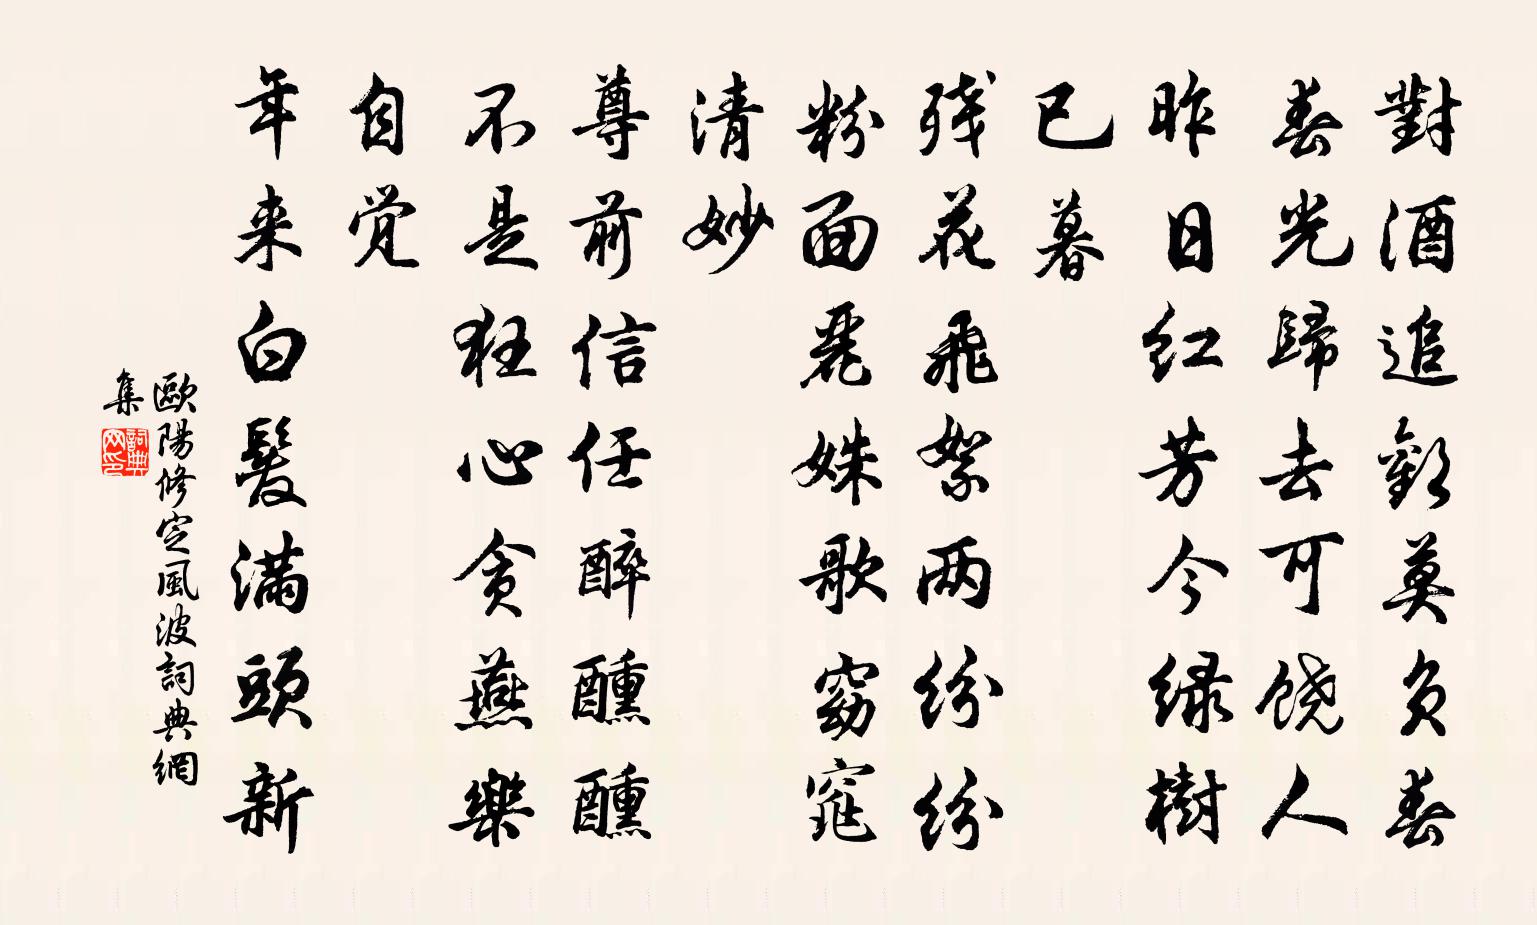 對酒追歡莫負春
春光歸去可饶人
昨日红芳今绿樹
已暮
残花飛絮两纷纷
粉面麗姝歌窈窕
清妙
尊前信任醉醺醺
不是狂心贪燕樂
自觉
年来白髮满頭新
歐陽修定風波詞典網
集
詞典
网印